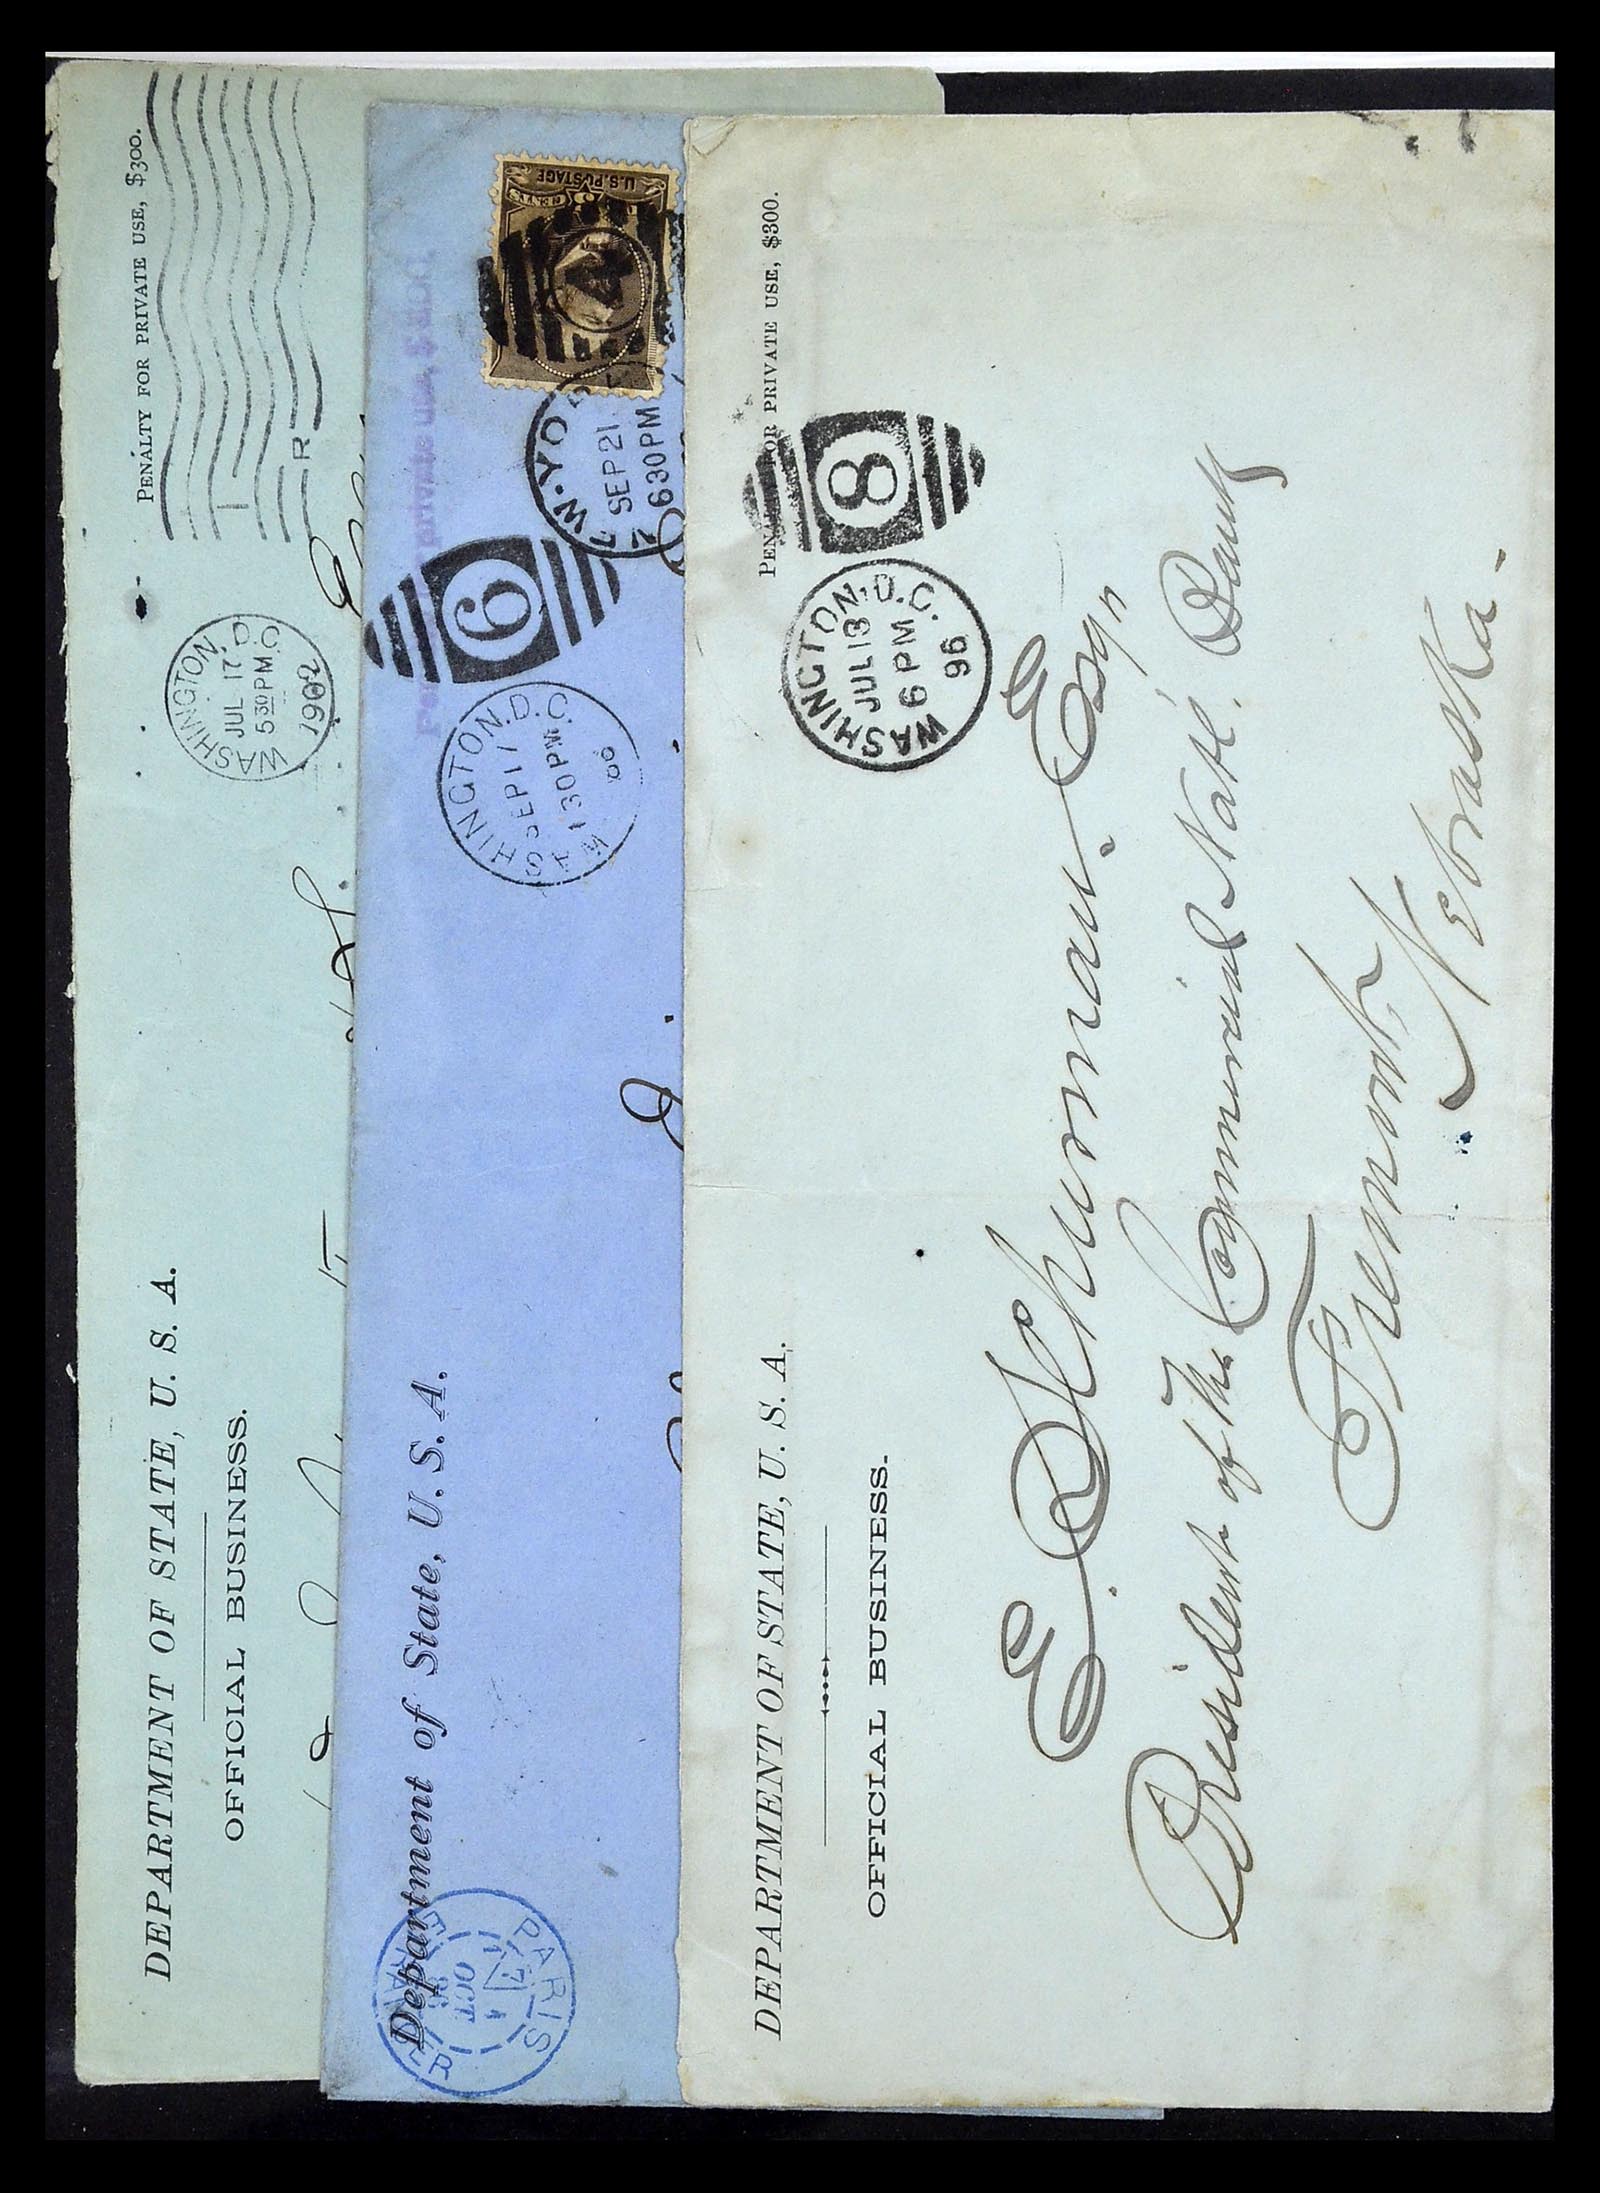 PENALTY FOR PRIVATE USE, $300.
WASHINGTON, D.C.
JUL 17
5 30 PM
1902
R
DEPARTMENT OF STATE, U. S. A.
OFFICIAL BUSINESS.
U.S. POSTAGE
SEP 21
6 30 PM
private use, $300
6
WASHINGTON, D.C.
SEP 17
1 30 PM
Department of State, U. S. A.
PARIS
OCT
PENALTY FOR PRIVATE USE, $300.
8
WASHINGTON, D.C.
JUL 13
6 PM
96
DEPARTMENT OF STATE, U. S. A.
OFFICIAL BUSINESS.
E. Schurman. Esqr
President of the Commercial Natl. Bank
Fremont,
Nebraska.